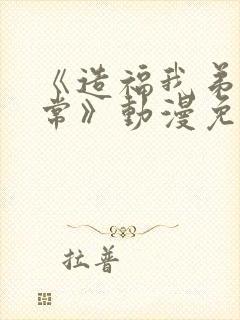 《造福我弟
常》動漫免
拉普